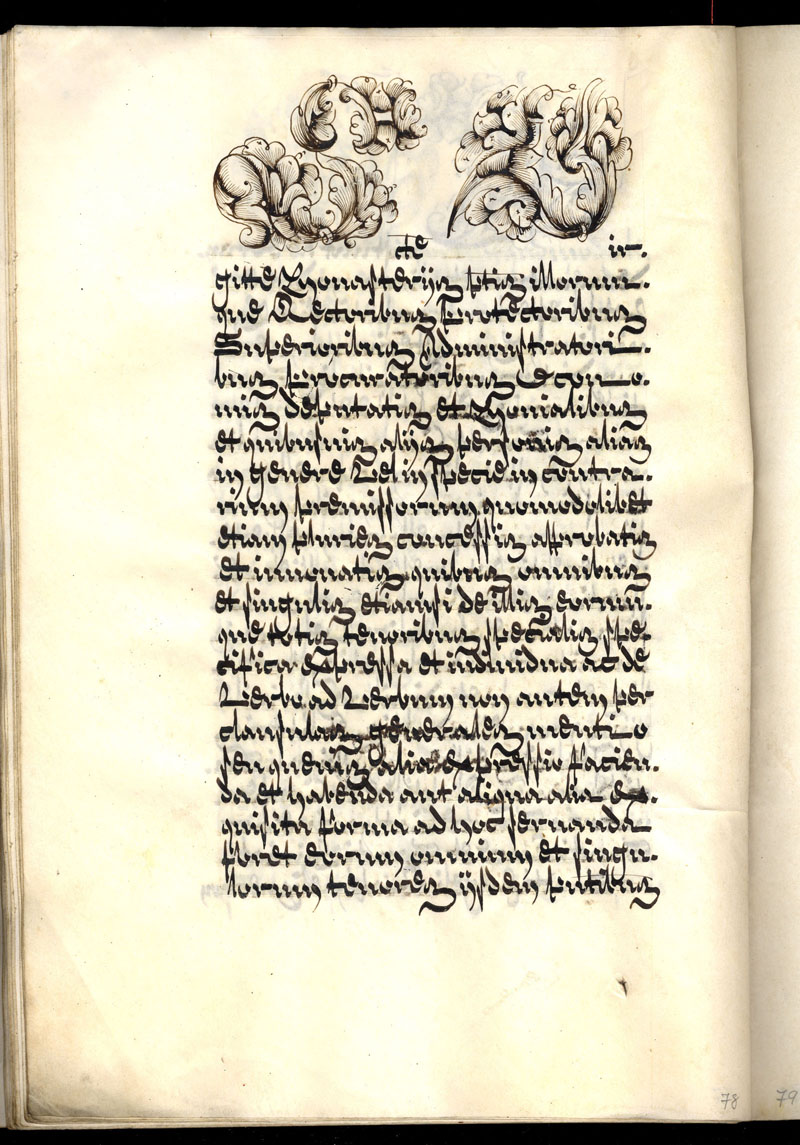 cte ir.
gitte Monasterijs ptis illorum.
que Rectoribus Protectoribus
Superioribus Administratori.
bus procuratoribus Œcono.
mis deputatis et Monialibus
et quibusuis alijs personis alias
in genere Vel in specie in contra.
rium premissorum quomodolibet
etiam pluries concessis approbatis
et innouatis quibus omnibus
et singulis etiamsi de illis eorum.
que totis tenoribus specialis spe
cifica expressa et indiuidua ac de
Verbo ad Verbum non autem per
clausulas generales mentio
seu queuis alia expressio facien.
da et habenda aut aliqua alia ex.
quisita forma ad hoc seruanda
foret eorum omnium et singu.
lorum tenores ijsdem pntibus
78 79